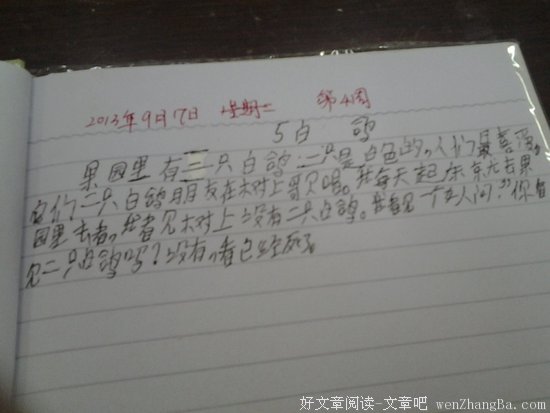 2013年9月17日 星期二 第4周
5白 鸽
果园里有二只白鸽,二只是白色的,人们最喜爱。
它们二只白鸽朋友在树上哥见唱。我每天起床就去果
园里去看,我看见树上没有二只白鸽。我看见一个女人问:"你看
见二只白鸽吗?没有,看已经死了。
好文章阅读-文章吧 wenZhangBa.com